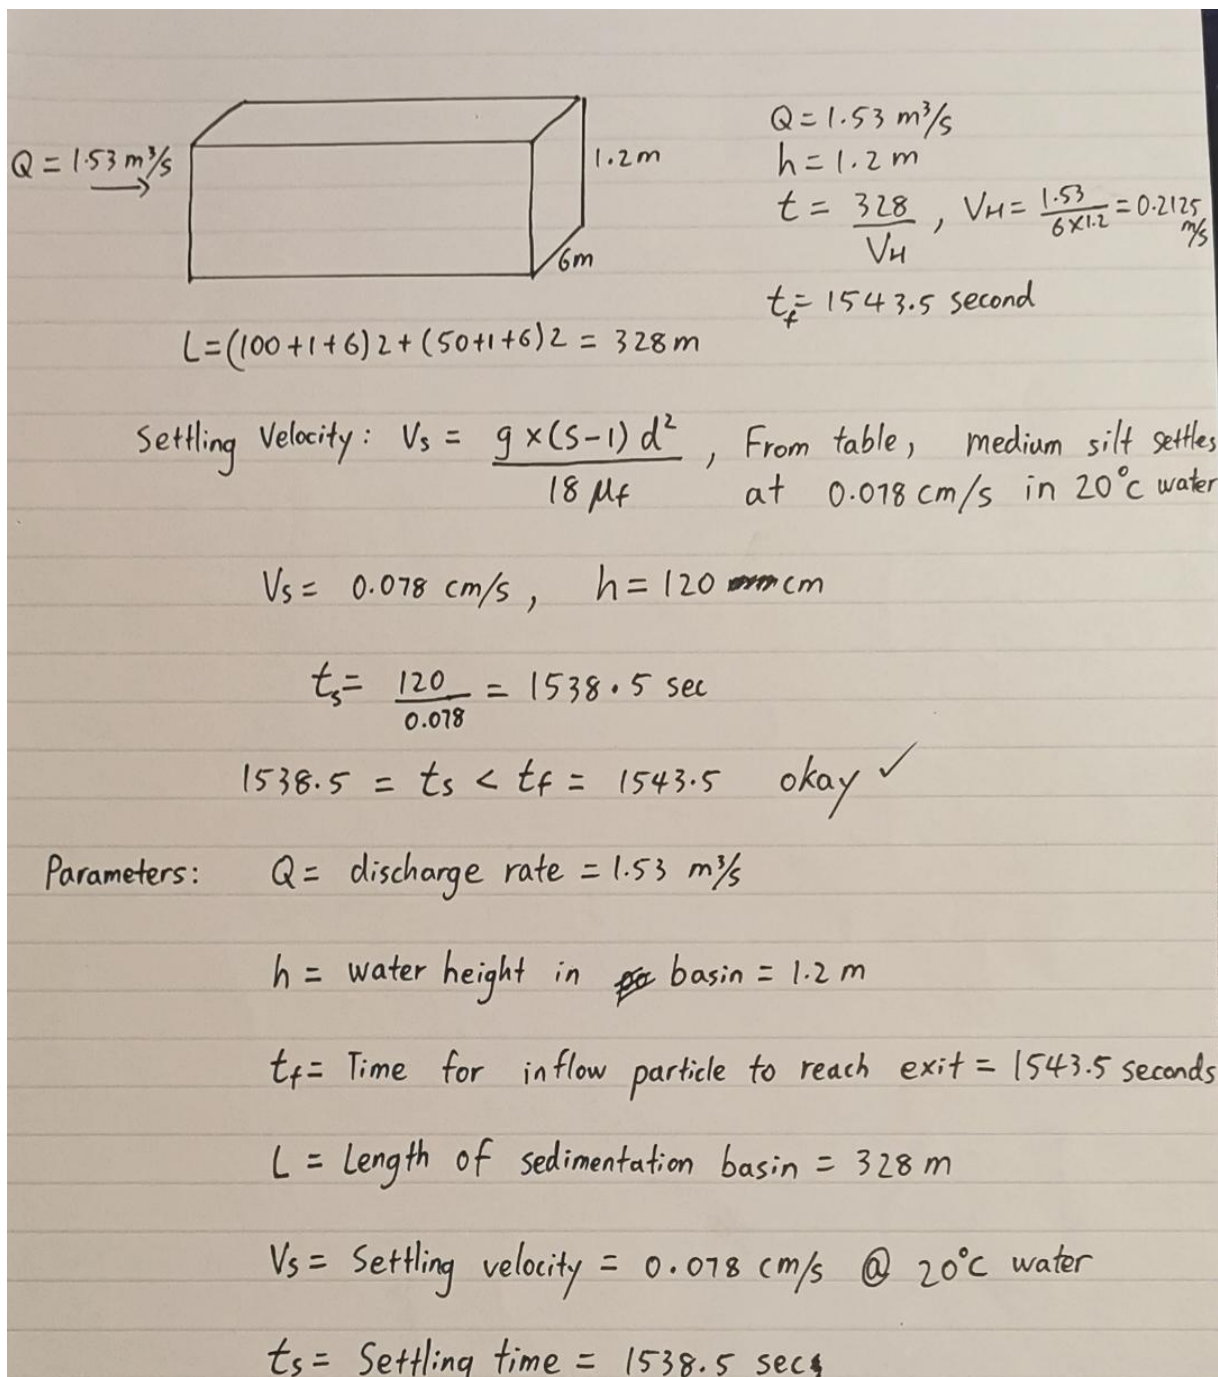 Q = 1.53 m³/s
1.2 m
6m
L=(100+1+6)2+(50+1+6)2 = 328 m
Q = 1.53 m³/s
h = 1.2 m
t = 328/VH , VH = 1.53/6×1.2 = 0.2125 m/s
tf = 1543.5 second
Settling Velocity: Vs = g×(S-1)d²/18 μf , From table, medium silt settles
at 0.078 cm/s in 20°c water
Vs = 0.078 cm/s , h = 120 cm
ts = 120/0.078 = 1538.5 sec
1538.5 = ts < tf = 1543.5 okay ✓
Parameters: Q = discharge rate = 1.53 m³/s
h = water height in basin = 1.2 m
tf = Time for inflow particle to reach exit = 1543.5 seconds
L = Length of sedimentation basin = 328 m
Vs = Settling velocity = 0.078 cm/s @ 20°C water
ts = Settling time = 1538.5 secs